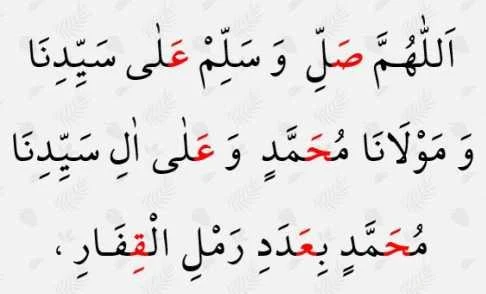 اَللّٰهُمَّ صَلِّ وَ سَلِّمْ عَلٰى سَيِّدِنَا
وَ مَوْلَانَا مُحَمَّدٍ وَ عَلٰى اٰلِ سَيِّدِنَا
مُحَمَّدٍ بِعَدَدِ رَمْلِ الْقِفَارِ ،